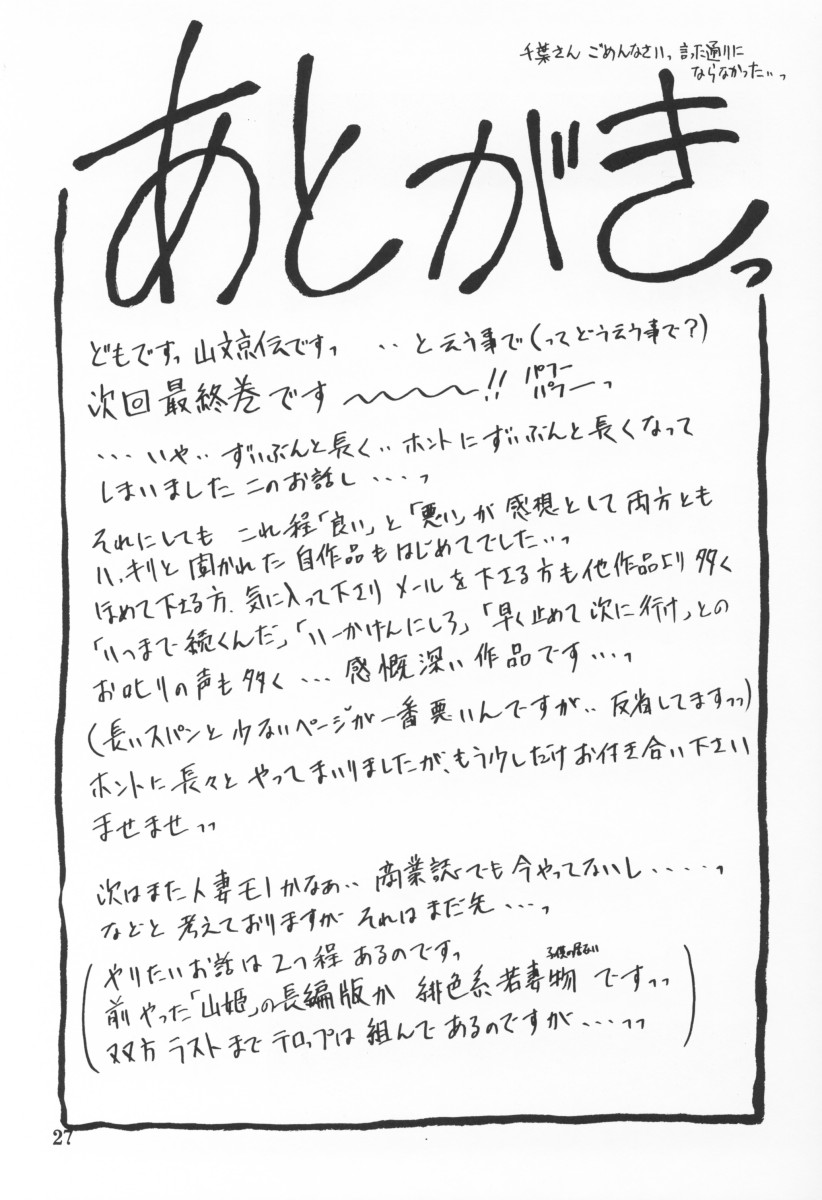 千葉さん ごめんなさいっ 言った通りに
ならなかった…っ
あとがきっ
どもですっ 山文京伝ですっ ‥と云う事で(ってどう云う事で?)
次回最終巻です〜〜〜〜!! パフーパフーっ
‥‥いや‥ずいぶんと長く‥ホントにずいぶんと長くなって
しまいましたこのお話し‥‥っ
それにしても これ程「良い」と「悪い」が感想として両方とも
ハッキリと聞かれた自作品もはじめてでした…っ
ほめて下さる方、気に入って下さり メールを下さる方も他作品より多く
「いつまで続くんだ」「いーかげんにしろ」「早く止めて次に行け」との
お叱りの声も多く…感慨深い作品です…っ
(長いスパンと少ないページが一番悪いんですが‥反省してますっっ)
ホントに長々とやってまいりましたが、もう少しだけお付き合い下さい
ませませっっ
次はまた人妻モノかなぁ‥商業誌でも今やってないし‥‥‥っ
などと考えておりますがそれはまだ先…っ
(やりたいお話は2つ程あるのですっ
前やった「山姫」の長編版か 緋色系若妻物 ですっっ
子供の居ない
双方ラストまでテロップは組んであるのですが…っっ)
27